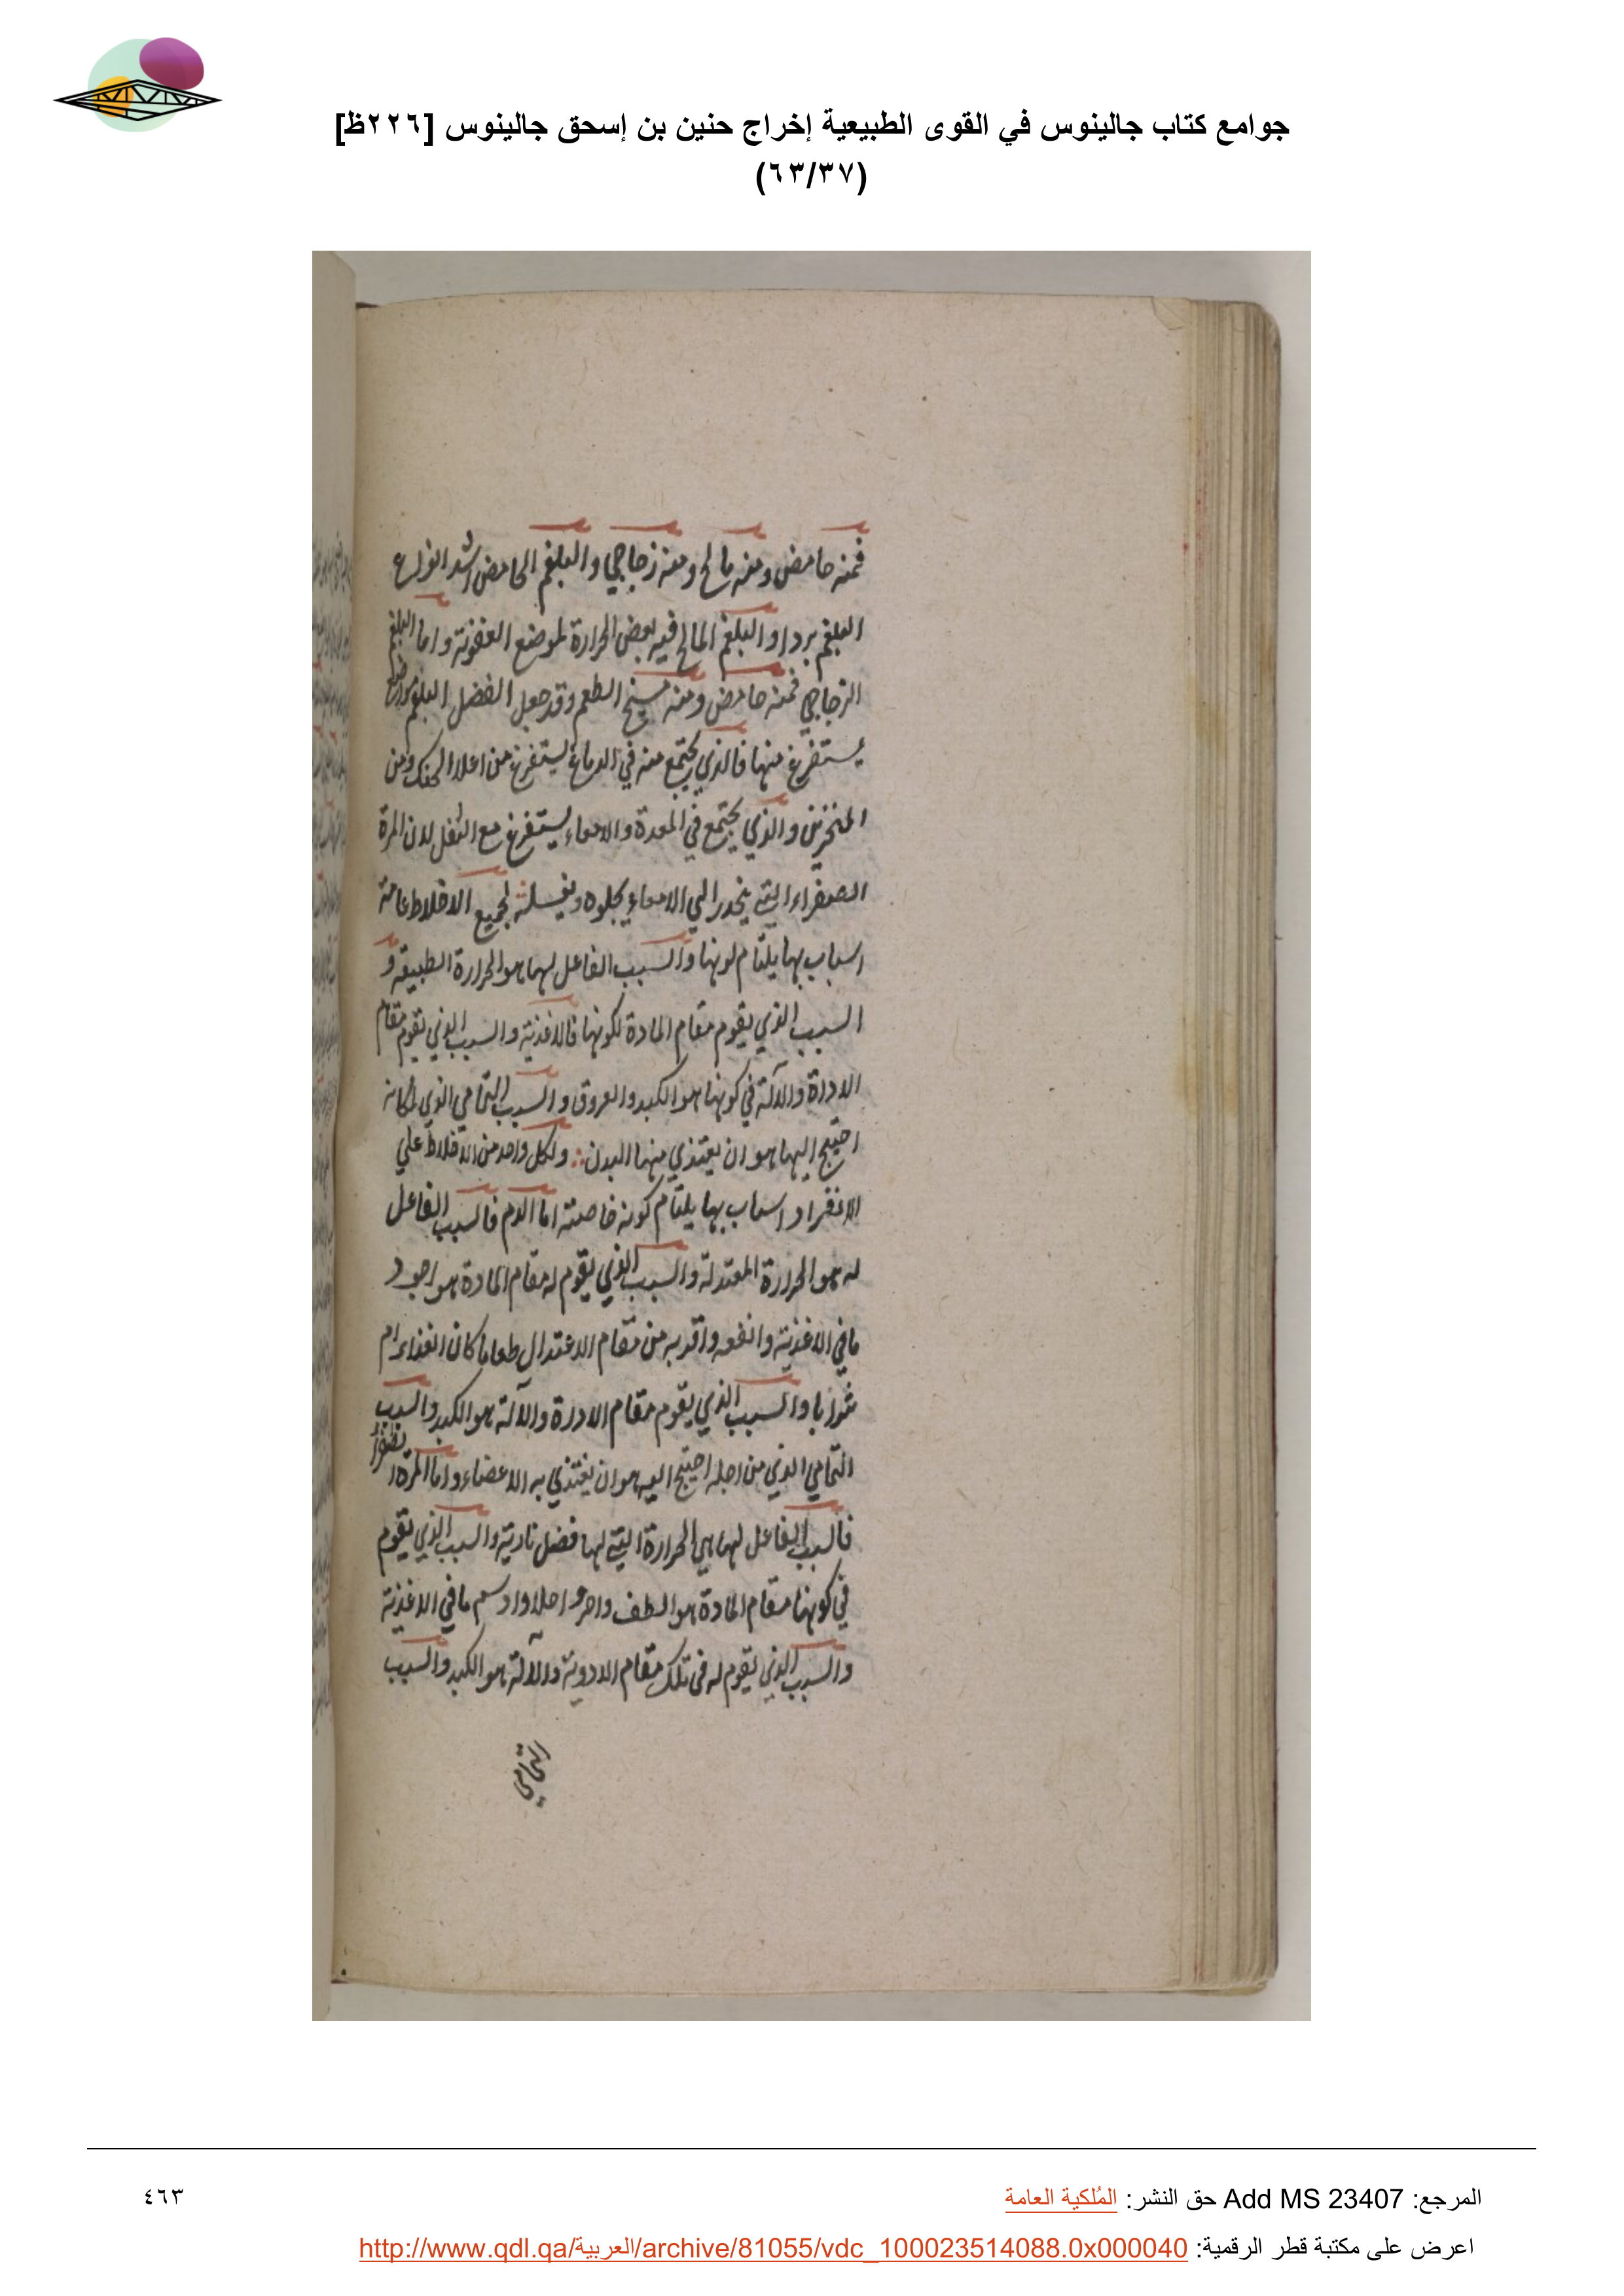 جوامع كتاب جالينوس في القوى الطبيعية إخراج حنين بن إسحق جالينوس [٢٢٦ظ]
(٦٣/٣٧)
فمنه حامض ومنه مالح ومنه زجاجي والبلغم الحامض اشد انواع
البلغم بردا والبلغم المالح فيه بعض الحرارة لموضع العفونة واما البلغم
الزجاجي فمنه حامض ومنه مسيخ الطعم وقد جعل الفضل البلغم مواضع
يستفرغ منها فالذي يجتمع منه في الدماغ يستفرغ من اعلا الحنك ومن
المنخرين والذي يجتمع في المعدة والامعاء يستفرغ مع الثفل لان المرة
الصفراء التي ينحدر الي الامعاء يجلوه ويغسله لجميع الاخلاط عامة
اسباب بها يلتام لونها والسبب الفاعل لها هو الحرارة الطبيعة و
السبب الذي يقوم مقام المادة لكونها فالاغذية والسبب الذي يقوم مقام
الاداة والالة في كونها هو الكبد والعروق والسبب التمامي الذي لمكانه
احتيج اليها هو ان يغتذي منها البدن ولكل واحد من الاخلاط علي
الانفراد اسباب بها يلتام كونه خاصته اما الدم فالسبب الفاعل
له هو الحرارة المعتدلة والسبب الذي يقوم له مقام المادة هو اجود
ما في الاغذية وانفعه واقربه من مقام الاعتدال طعاما كان الغذاء ام
شرابا والسبب الذي يقوم مقام الاداة والالة هو الكبد والسبب
التمامي الذي من اجله احتيج اليه هو ان يغتذي به الاعضاء واما المرة
فالسبب الفاعل لها هي الحرارة التي لها فضل نارية والسبب الذي يقوم
في كونها مقام المادة هو الطف واحر واحلا وادسم ما في الاغذية
والسبب الذي يقوم له في تلك مقام الادوية والآلة هو الكبد والسبب
التمامي
المرجع: Add MS 23407 حق النشر: المُلكية العامة
٤٦٣
اعرض على مكتبة قطر الرقمية: http://www.qdl.qa/العربية/archive/81055/vdc_100023514088.0x000040